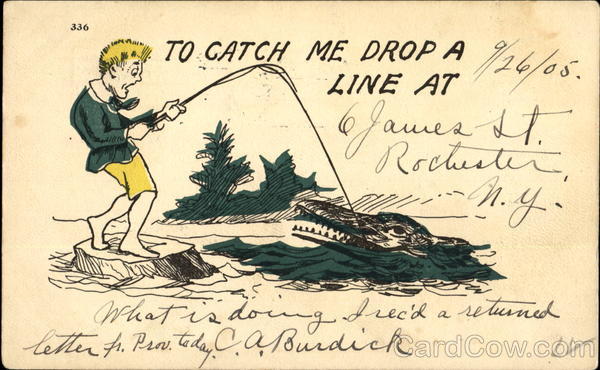 336
TO CATCH ME DROP A
LINE AT
9/26/05.
6 James St.
Rochester,
N.Y.
What is doing I rec'd a returned
letter fr. Prov. today. C. A. Burdick
CardCow.com